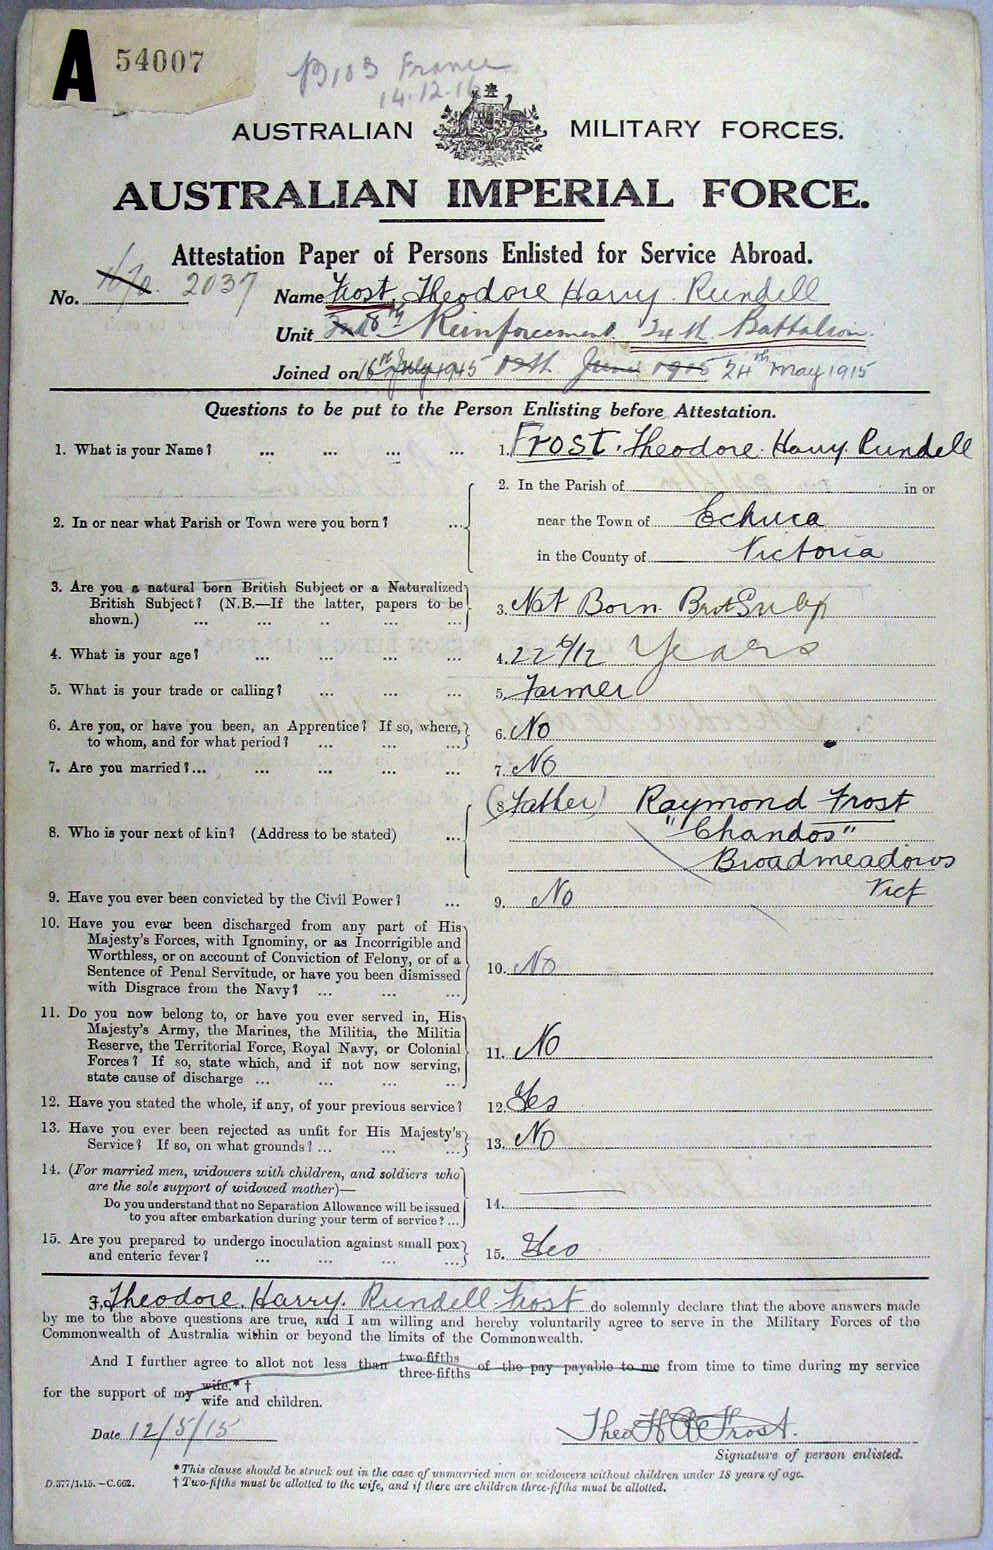 A 54007
B103 France
14.12.16
AUSTRALIAN MILITARY FORCES.
AUSTRALIAN IMPERIAL FORCE.
Attestation Paper of Persons Enlisted for Service Abroad.
No. 2037 Name Frost, Theodore Harry Rundell
Unit 8th Reinforcement 24th Battalion.
Joined on 16th July 1945 10th June 1915 24th May 1915
Questions to be put to the Person Enlisting before Attestation.
1. What is your Name? ... ... ... ... 1. FROST. Theodore. Harry. Rundell
2. In or near what Parish or Town were you born? ... 2. In the Parish of in or
near the Town of Echuca
in the County of Victoria
3. Are you a natural born British Subject or a Naturalized
British Subject? (N.B.—If the latter, papers to be
shown.) ... ... .. ... ... 3. Nat Born Brit Subj
4. What is your age? ... ... ... ... 4. 22 6/12 Years
5. What is your trade or calling? ... ... ... 5. Farmer
6. Are you, or have you been, an Apprentice? If so, where,
to whom, and for what period? ... ... ... 6. No
7. Are you married?... ... ... ... ... 7. No
8. Who is your next of kin? (Address to be stated) ... 8. (Father) Raymond Frost
"Chandos"
Broadmeadows
Vict
9. Have you ever been convicted by the Civil Power? ... 9. No
10. Have you ever been discharged from any part of His
Majesty's Forces, with Ignominy, or as Incorrigible and
Worthless, or on account of Conviction of Felony, or of a
Sentence of Penal Servitude, or have you been dismissed
with Disgrace from the Navy? ... ... ... 10. No
11. Do you now belong to, or have you ever served in, His
Majesty's Army, the Marines, the Militia, the Militia
Reserve, the Territorial Force, Royal Navy, or Colonial
Forces? If so, state which, and if not now serving,
state cause of discharge ... ... ... ... 11. No
12. Have you stated the whole, if any, of your previous service? 12. Yes
13. Have you ever been rejected as unfit for His Majesty's
Service? If so, on what grounds? ... ... ... 13. No
14. (For married men, widowers with children, and soldiers who
are the sole support of widowed mother)—
Do you understand that no Separation Allowance will be issued
to you after embarkation during your term of service? ... 14.
15. Are you prepared to undergo inoculation against small pox
and enteric fever? ... ... ... 15. Yes
I, Theodore. Harry. Rundell Frost do solemnly declare that the above answers made
by me to the above questions are true, and I am willing and hereby voluntarily agree to serve in the Military Forces of the
Commonwealth of Australia within or beyond the limits of the Commonwealth.
And I further agree to allot not less than two-fifths three-fifths of the pay payable to me from time to time during my service
for the support of my wife.*† wife and children.
Date 12/5/15 Theo H R Frost.
Signature of person enlisted.
* This clause should be struck out in the case of unmarried men or widowers without children under 18 years of age.
D.577/1.15.—C.662. † Two-fifths must be allotted to the wife, and if there are children three-fifths must be allotted.